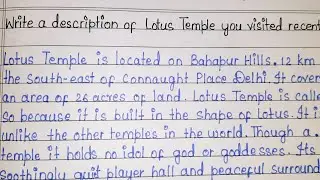 Write a description of Lotus Temple you visited recent
Lotus Temple is located on Bahapur Hills. 12 km
the south-east of Connaught Place Delhi. It cover
an area of 26 acres of land. Lotus Temple is calle
so because it is built in the shape of lotus. It i
unlike the other temples in the world. Though a
temple it holds no idol of god or goddesses. Its
Soothingly quit player hall and peaceful surround